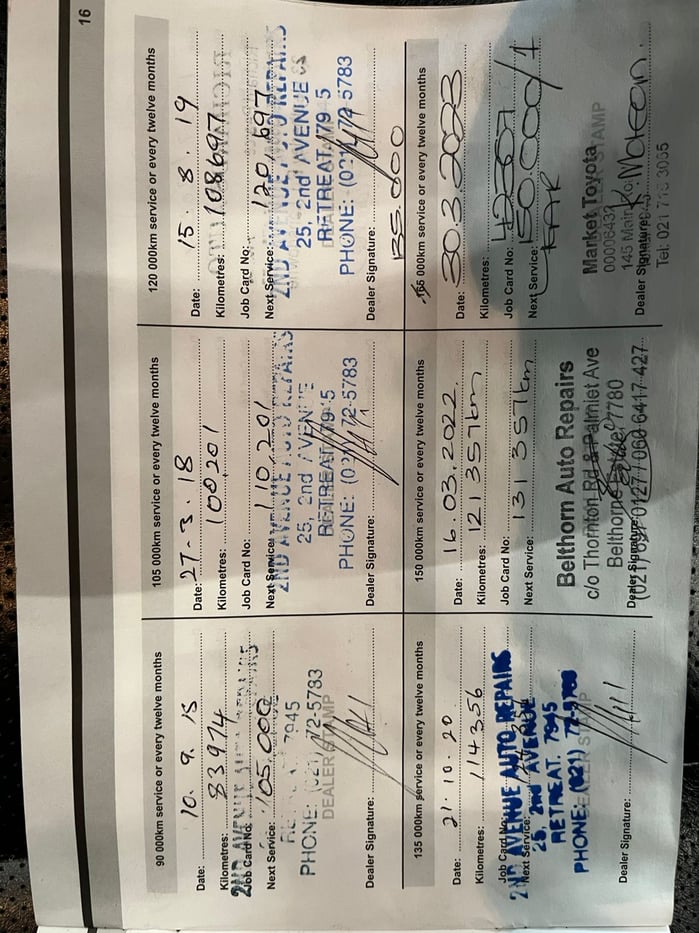 16
90 000km service or every twelve months
Date: 10. 9. 15
Kilometres: 83974
Job Card No:
Next Service: 105.000
7945
PHONE: (021) 72-5783
DEALER STAMP
Dealer Signature:
105 000km service or every twelve months
Date: 27-3. 18
Kilometres: 100,201
Job Card No:
Next Service: 110 201
2ND AVENUE AUTO REPAIRS
25, 2nd AVENUE
RETREAT 7945
PHONE: (021) 72-5783
Dealer Signature:
120 000km service or every twelve months
Date: 15. 8. 19
Kilometres: 108697
Job Card No:
Next Service: 120,697
2ND AVENUE AUTO REPAIRS
25, 2nd AVENUE
RETREAT 7945
PHONE: (021) 72-5783
Dealer Signature:
135 000km service or every twelve months
Date: 21. 10. 20
Kilometres: 114356
Job Card No:
Next Service:
2ND AVENUE AUTO REPAIRS
25, 2nd AVENUE
RETREAT. 7945
PHONE: (021) 72-5783
DEALER STAMP
Dealer Signature:
150 000km service or every twelve months
Date: 16.03.2022.
Kilometres: 121 357km
Job Card No:
Next Service: 131 357km
Belthorn Auto Repairs
c/o Thornton Rd & Palmiet Ave
7780
Dealer Signature:
135.000
000km service or every twelve months
Date: 30.3.2023
Kilometres:
Job Card No:
Next Service: 150.000/1
Market Toyota
00006432
145 Main
STAMP
Dealer Signature: